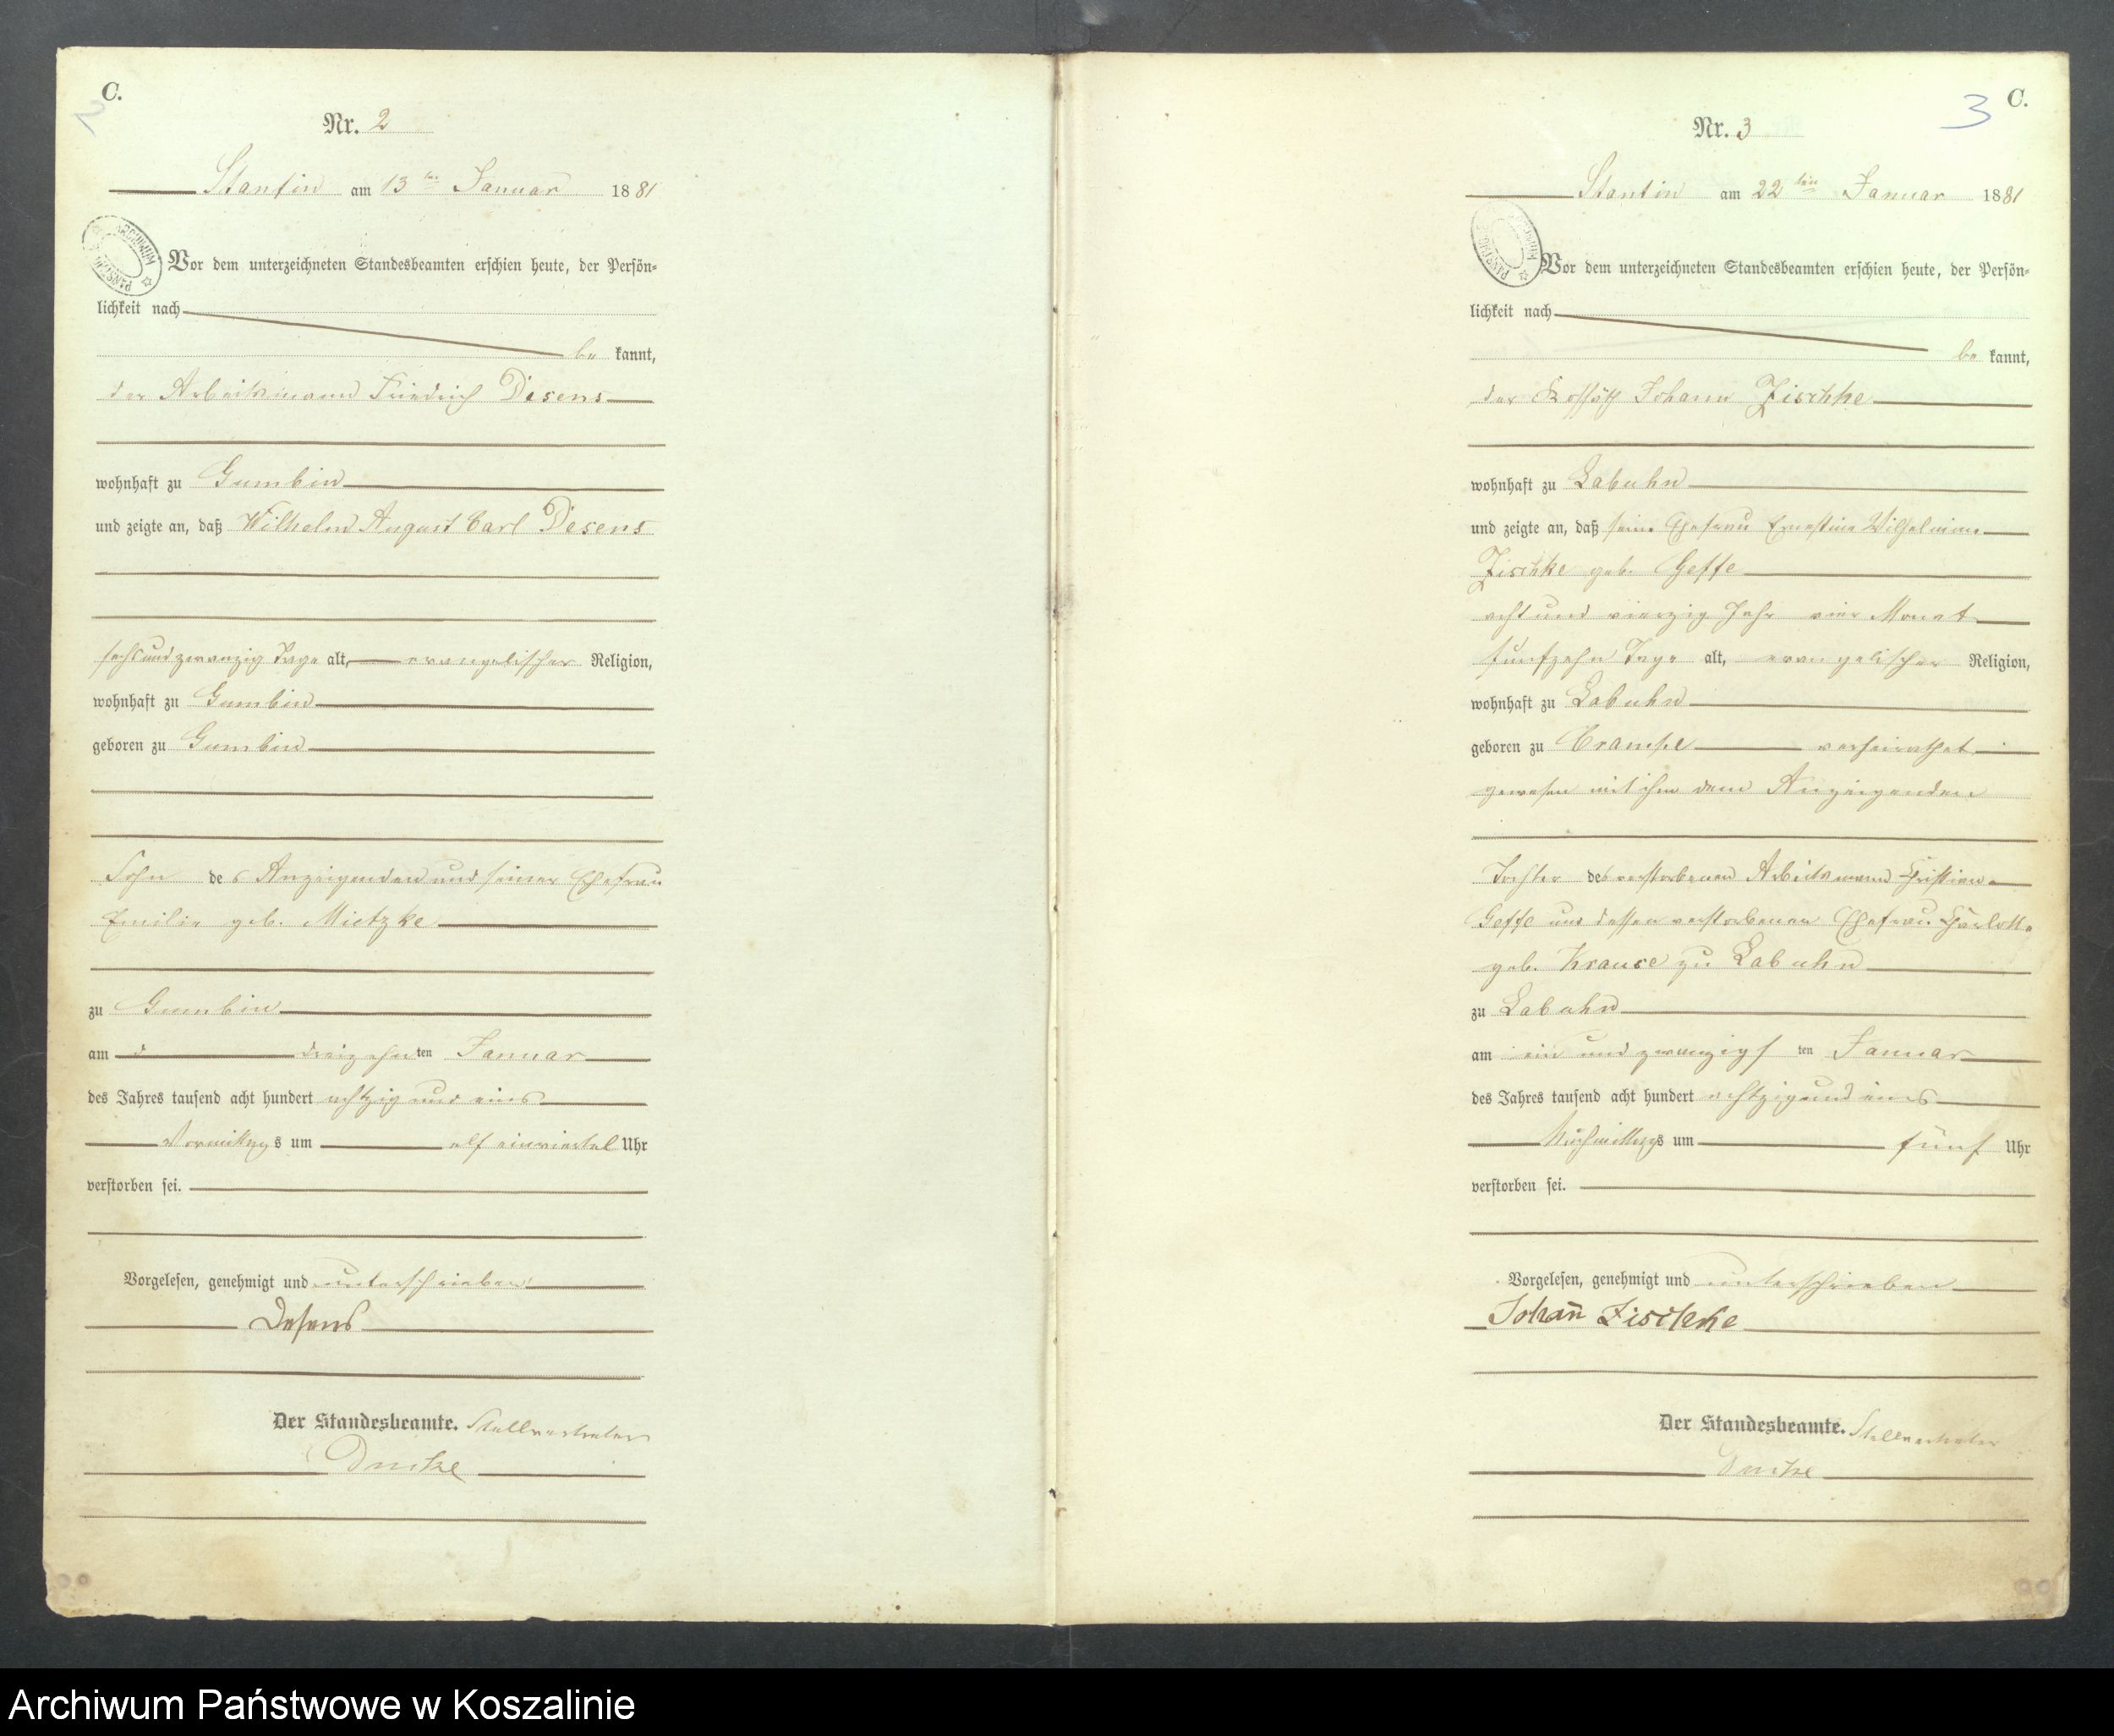 C.
2
Nr. 2
Stantin am 13ten Januar 1881
ARCHIWUM PAŃSTW
Vor dem unterzeichneten Standesbeamten erschien heute, der Persön=
lichkeit nach
be kannt,
der Arbeitsmann Friedrich Desens
wohnhaft zu Gumbin
und zeigte an, daß Wilhelm August Carl Desens
sechsundzwanzig Tage alt, evangelischer Religion,
wohnhaft zu Gumbin
geboren zu Gumbin
Sohn des Anzeigenden und seiner Ehefrau
Emilie geb. Mietzke
zu Gumbin
am d dreizehnten Januar
des Jahres tausend acht hundert achtzig und eins
Vormittags um elf einviertel Uhr
verstorben sei.
Vorgelesen, genehmigt und unterschrieben
Desens
Der Standesbeamte. Stellvertreter
C.
3
Nr. 3
Stantin am 22ten Januar 1881
Vor dem unterzeichneten Standesbeamten erschien heute, der Persön=
lichkeit nach
be kannt,
der Kossäth Johann Zischke
wohnhaft zu Labuhn
und zeigte an, daß seine Ehefrau Ernestine Wilhelmine
Zischke geb. Geffe
acht und vierzig Jahr vier Monat
fünfzehn Tage alt, evangelischer Religion,
wohnhaft zu Labuhn
geboren zu Crampe verheirathet
gewesen mit ihm dem Anzeigenden
Tochter des verstorbenen Arbeitsmann Christian
Geffe und dessen verstorbenen Ehefrau Charlotte
geb. Krause zu Labuhn
zu Labuhn
am ein und zwanzigsten Januar
des Jahres tausend acht hundert achtzig und eins
Nachmittags um fünf Uhr
verstorben sei.
Vorgelesen, genehmigt und unterschrieben
Johann Zischke
Der Standesbeamte. Stellvertreter
Archiwum Państwowe w Koszalinie